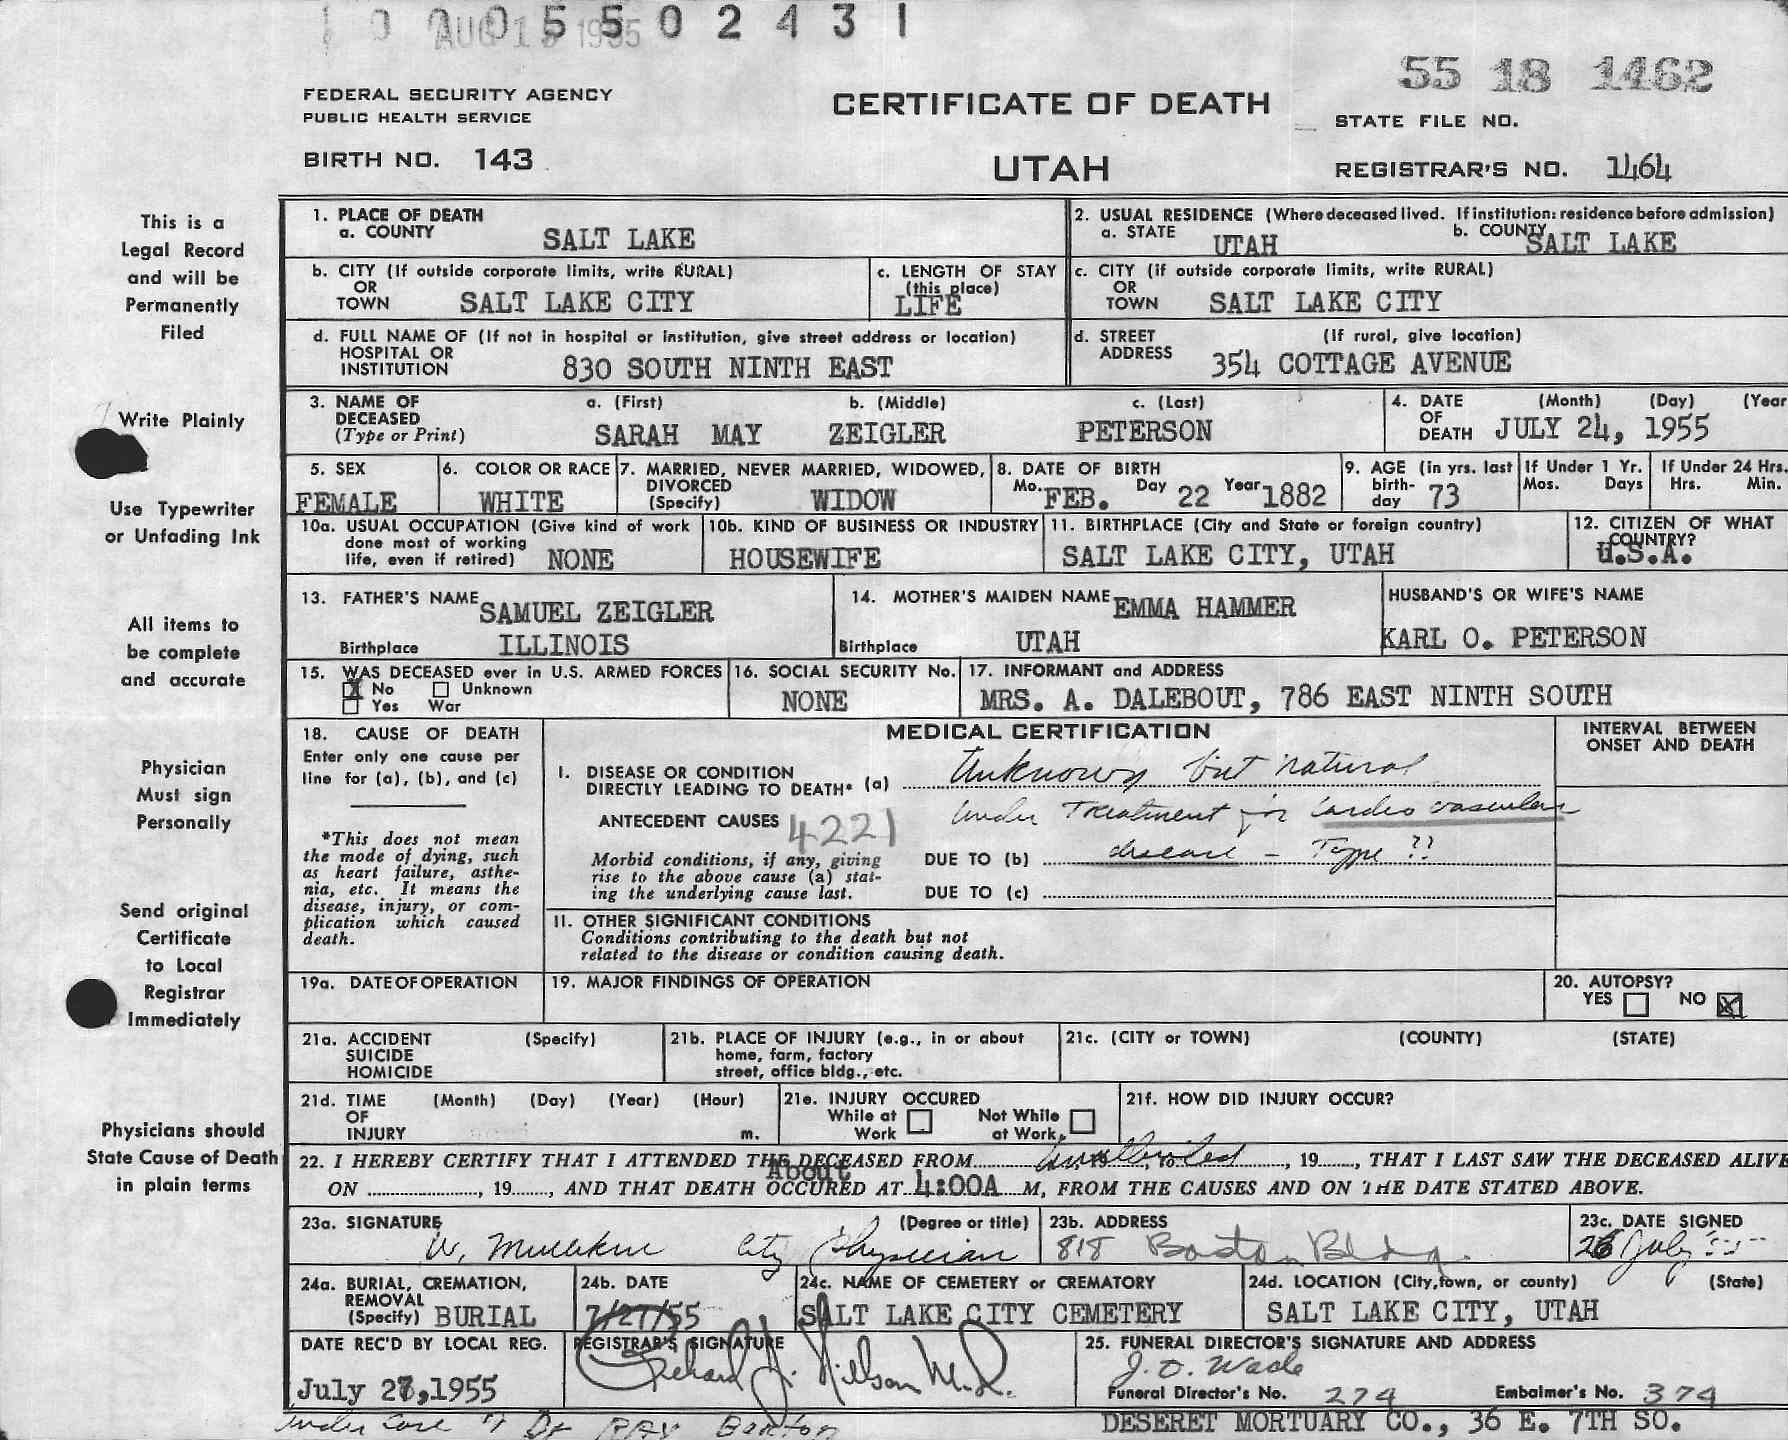 1 0 0 0 5 5 0 2 4 3 1
AUG 15 1955
55 18 1462
FEDERAL SECURITY AGENCY
PUBLIC HEALTH SERVICE
CERTIFICATE OF DEATH
STATE FILE NO.
BIRTH NO. 143
UTAH
REGISTRAR'S NO. 1464
This is a
Legal Record
and will be
Permanently
Filed
Write Plainly
Use Typewriter
or Unfading Ink
All items to
be complete
and accurate
Physician
Must sign
Personally
Send original
Certificate
to Local
Registrar
Immediately
Physicians should
State Cause of Death
in plain terms
1. PLACE OF DEATH
a. COUNTY SALT LAKE
2. USUAL RESIDENCE (Where deceased lived. If institution: residence before admission)
a. STATE UTAH b. COUNTY SALT LAKE
b. CITY (If outside corporate limits, write RURAL)
OR
TOWN SALT LAKE CITY
c. LENGTH OF STAY
(this place)
LIFE
c. CITY (if outside corporate limits, write RURAL)
OR
TOWN SALT LAKE CITY
d. FULL NAME OF (If not in hospital or institution, give street address or location)
HOSPITAL OR
INSTITUTION 830 SOUTH NINTH EAST
d. STREET (If rural, give location)
ADDRESS 354 COTTAGE AVENUE
3. NAME OF a. (First) b. (Middle) c. (Last)
DECEASED
(Type or Print) SARAH MAY ZEIGLER PETERSON
4. DATE (Month) (Day) (Year
OF
DEATH JULY 24, 1955
5. SEX
FEMALE
6. COLOR OR RACE
WHITE
7. MARRIED, NEVER MARRIED, WIDOWED,
DIVORCED
(Specify) WIDOW
8. DATE OF BIRTH
Mo. FEB. Day 22 Year 1882
9. AGE (in yrs. last
birth-
day 73
If Under 1 Yr.
Mos. Days
If Under 24 Hrs.
Hrs. Min.
10a. USUAL OCCUPATION (Give kind of work
done most of working
life, even if retired) NONE
10b. KIND OF BUSINESS OR INDUSTRY
HOUSEWIFE
11. BIRTHPLACE (City and State or foreign country)
SALT LAKE CITY, UTAH
12. CITIZEN OF WHAT
COUNTRY?
U.S.A.
13. FATHER'S NAME SAMUEL ZEIGLER
Birthplace ILLINOIS
14. MOTHER'S MAIDEN NAME EMMA HAMMER
Birthplace UTAH
HUSBAND'S OR WIFE'S NAME
KARL O. PETERSON
15. WAS DECEASED ever in U.S. ARMED FORCES
X No Unknown
Yes War
16. SOCIAL SECURITY No.
NONE
17. INFORMANT and ADDRESS
MRS. A. DALEBOUT, 786 EAST NINTH SOUTH
18. CAUSE OF DEATH
Enter only one cause per
line for (a), (b), and (c)
*This does not mean
the mode of dying, such
as heart failure, asthe-
nia, etc. It means the
disease, injury, or com-
plication which caused
death.
MEDICAL CERTIFICATION
INTERVAL BETWEEN
ONSET AND DEATH
I. DISEASE OR CONDITION
DIRECTLY LEADING TO DEATH* (a) Unknown but natural
ANTECEDENT CAUSES 4221 Under Treatment for Cardio vascular
Morbid conditions, if any, giving
rise to the above cause (a) stat-
ing the underlying cause last.
DUE TO (b) disease - Type ??
DUE TO (c)
II. OTHER SIGNIFICANT CONDITIONS
Conditions contributing to the death but not
related to the disease or condition causing death.
19a. DATE OF OPERATION
19. MAJOR FINDINGS OF OPERATION
20. AUTOPSY?
YES NO X
21a. ACCIDENT (Specify)
SUICIDE
HOMICIDE
21b. PLACE OF INJURY (e.g., in or about
home, farm, factory
street, office bldg., etc.
21c. (CITY or TOWN) (COUNTY) (STATE)
21d. TIME (Month) (Day) (Year) (Hour)
OF
INJURY m.
21e. INJURY OCCURED
While at Work Not While at Work
21f. HOW DID INJURY OCCUR?
22. I HEREBY CERTIFY THAT I ATTENDED THE DECEASED FROM , 19 , to , 19 , THAT I LAST SAW THE DECEASED ALIVE
ON , 19 , AND THAT DEATH OCCURED AT About 4:00A M, FROM THE CAUSES AND ON THE DATE STATED ABOVE.
23a. SIGNATURE (Degree or title)
W, City Physician
23b. ADDRESS
818 Boston Bldg.
23c. DATE SIGNED
26 July 55
24a. BURIAL, CREMATION,
REMOVAL
(Specify) BURIAL
24b. DATE
7/27/55
24c. NAME OF CEMETERY or CREMATORY
SALT LAKE CITY CEMETERY
24d. LOCATION (City, town, or county) (State)
SALT LAKE CITY, UTAH
DATE REC'D BY LOCAL REG.
July 27, 1955
REGISTRAR'S SIGNATURE
Richard J. Nilson M.D.
25. FUNERAL DIRECTOR'S SIGNATURE AND ADDRESS
J. O. Wade
Funeral Director's No. 274 Embalmer's No. 374
DESERET MORTUARY CO., 36 E. 7TH SO.
under care of Dr RAY Barton